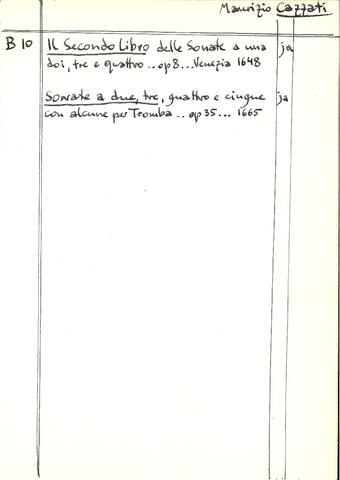 Maurizio Cazzati
B 10 Il Secondo Libro delle Sonate a una ja
doi, tre e quattro .. op 8 ... Venezia 1648
Sonate a due, tre, quattro e cinque ja
con alcune per Tromba .. op 35 ... 1665